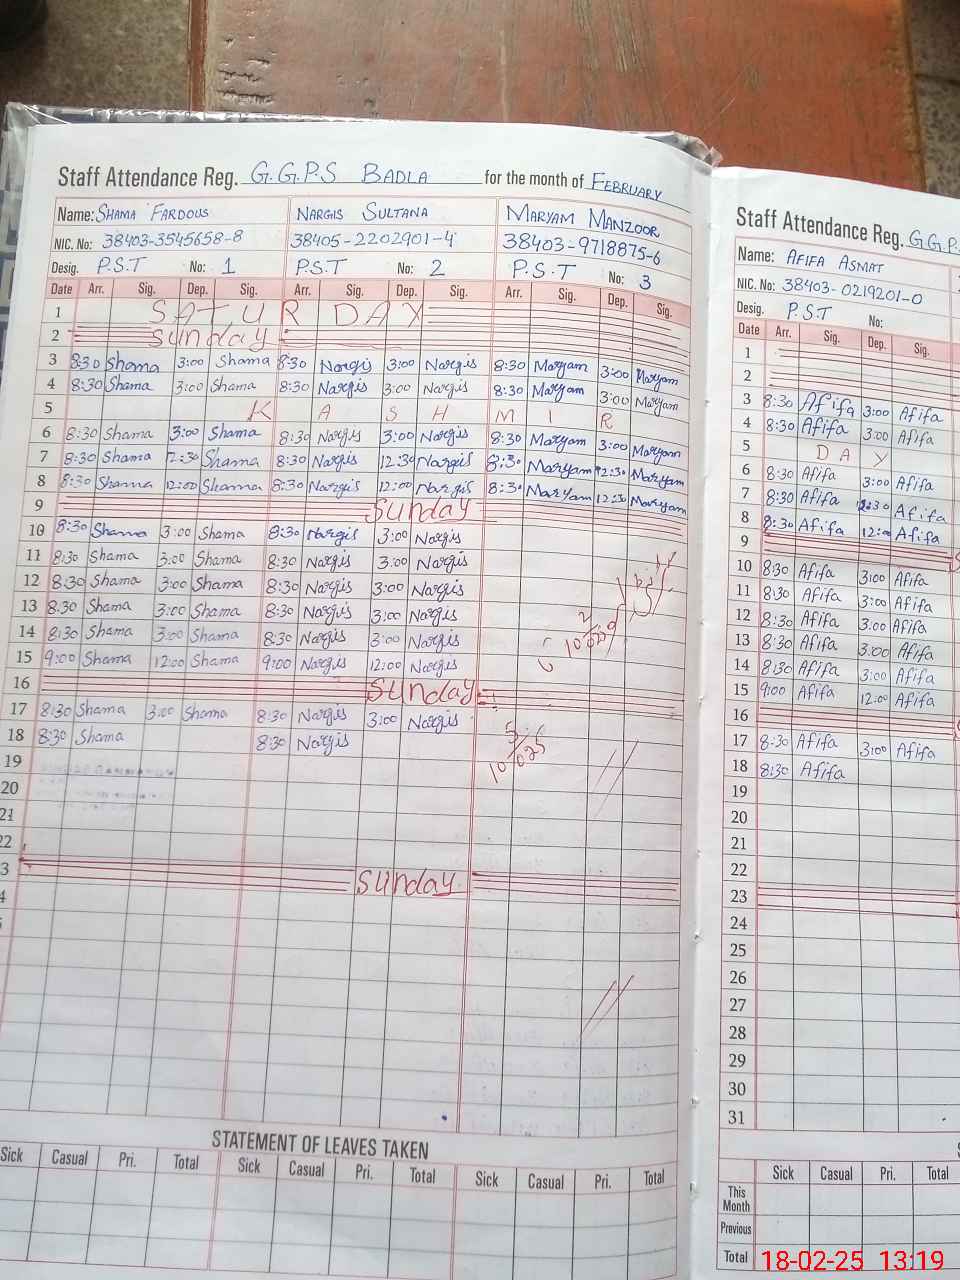 Staff Attendance Reg. G.G.P.S BADLA for the month of FEBRUARY
Name: SHAMA FARDOUS NARGIS SULTANA MARYAM MANZOOR
NIC. No: 38403-3545658-8 38405-2202901-4 38403-9718875-6
Desig. P.S.T No: 1 P.S.T No: 2 P.S.T No: 3
Date Arr. Sig. Dep. Sig. Arr. Sig. Dep. Sig. Arr. Sig. Dep. Sig.
1 SATURDAY
2 Sunday
3 8:30 Shama 3:00 Shama 8:30 Nargis 3:00 Nargis 8:30 Maryam 3:00 Maryam
4 8:30 Shama 3:00 Shama 8:30 Nargis 3:00 Nargis 8:30 Maryam 3:00 Maryam
5 K A S H M I R
6 8:30 Shama 3:00 Shama 8:30 Nargis 3:00 Nargis 8:30 Maryam 3:00 Maryam
7 8:30 Shama 12:30 Shama 8:30 Nargis 12:30 Nargis 8:30 Maryam 12:30 Maryam
8 8:30 Shama 12:00 Shama 8:30 Nargis 12:00 Nargis 8:30 Maryam Maryam
9 Sunday
10 8:30 Shama 3:00 Shama 8:30 Nargis 3:00 Nargis
11 8:30 Shama 3:00 Shama 8:30 Nargis 3:00 Nargis
12 8:30 Shama 3:00 Shama 8:30 Nargis 3:00 Nargis
13 8:30 Shama 3:00 Shama 8:30 Nargis 3:00 Nargis
14 8:30 Shama 3:00 Shama 8:30 Nargis 3:00 Nargis
15 9:00 Shama 12:00 Shama 9:00 Nargis 12:00 Nargis
16 Sunday
17 8:30 Shama 3:00 Shama 8:30 Nargis 3:00 Nargis
18 8:30 Shama 8:30 Nargis
19
20
21
22
3 Sunday
4
STATEMENT OF LEAVES TAKEN
Sick Casual Pri. Total Sick Casual Pri. Total Sick Casual Pri. Total
Staff Attendance Reg. G.G.P.
Name: AFIFA ASMAT
NIC. No: 38403-0219201-0
Desig. P.S.T No:
Date Arr. Sig. Dep. Sig.
1
2
3 8:30 Afifa 3:00 Afifa
4 8:30 Afifa 3:00 Afifa
5 DAY
6 8:30 Afifa 3:00 Afifa
7 8:30 Afifa 12:30 Afifa
8 8:30 Afifa 12:00 Afifa
9
10 8:30 Afifa 3:00 Afifa
11 8:30 Afifa 3:00 Afifa
12 8:30 Afifa 3:00 Afifa
13 8:30 Afifa 3:00 Afifa
14 8:30 Afifa 3:00 Afifa
15 9:00 Afifa 12:00 Afifa
16
17 8:30 Afifa 3:00 Afifa
18 8:30 Afifa
19
20
21
22
23
24
25
26
27
28
29
30
31
Sick Casual Total
This Month
Previous
Total
18-02-25 13:19